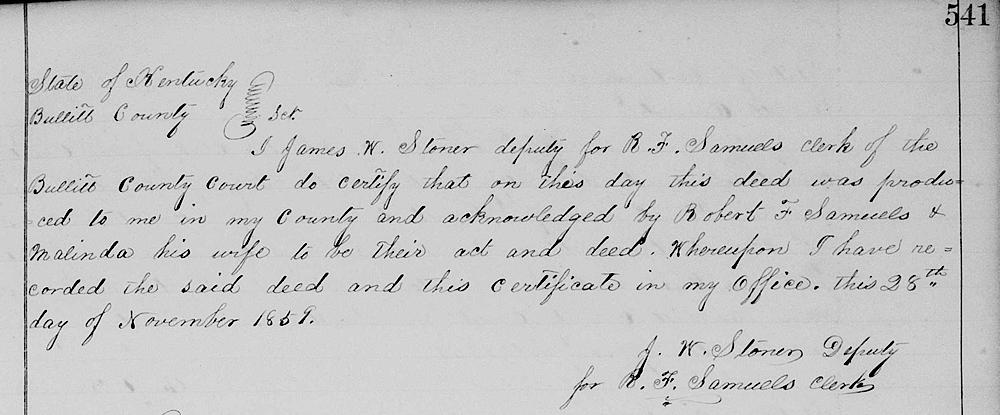 541
State of Kentucky
Bullitt County Sct
I James W. Stoner deputy for R. F. Samuels clerk of the
Bullitt County Court do certify that on this day this deed was produ=
=ced to me in my County and acknowledged by Robert F Samuels &
Malinda his wife to be their act and deed. Whereupon I have re=
corded the said deed and this certificate in my Office. this 28th
day of November 1859.
J. W. Stoner Deputy
for R. F. Samuels clerk